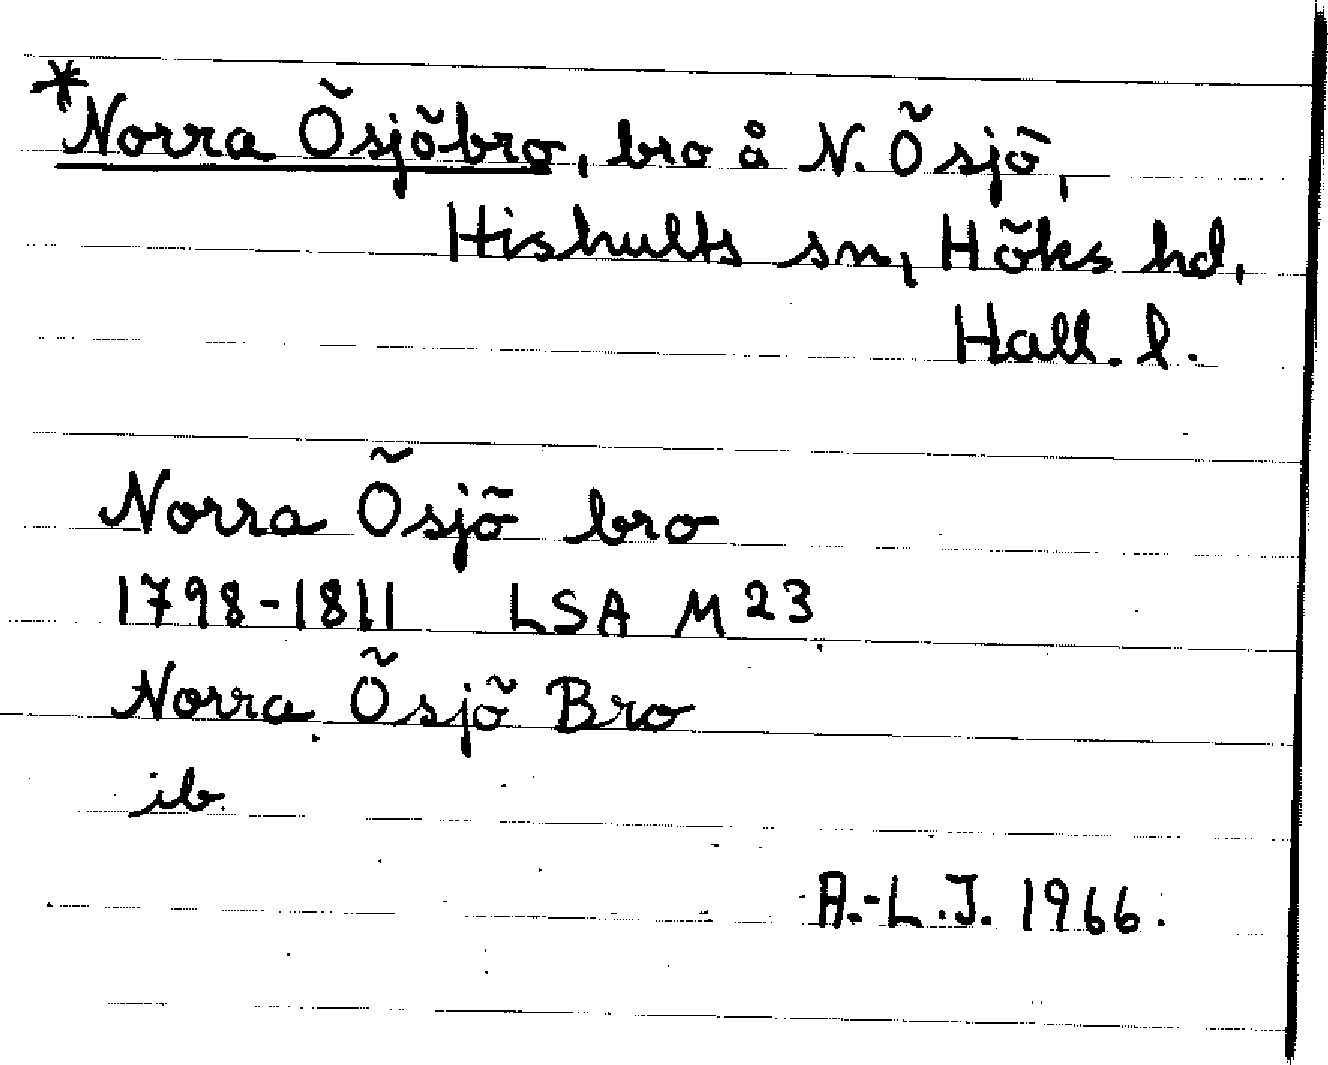 *Norra Ösjöbro, bro å N. Ösjö,
Hishults sn, Höks hd,
Hall. l.
Norra Ösjö bro
1798-1811 LSA M 23
Norra Ösjö Bro
ib.
A.-L.J. 1966.